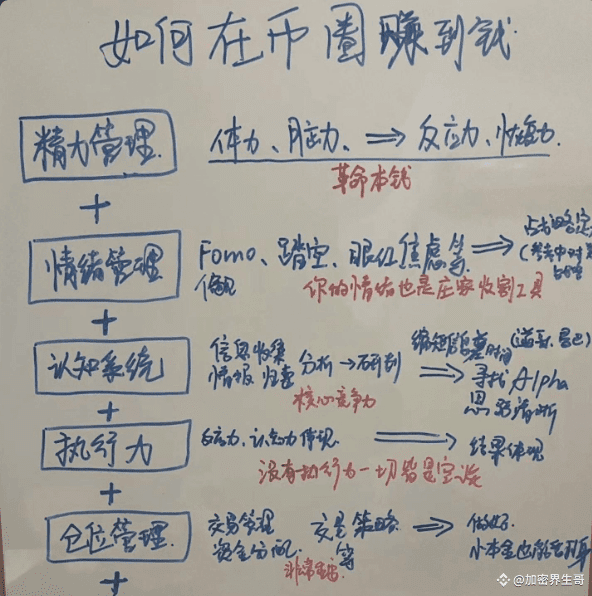 如何在币圈赚到钱
精力管理 体力、脑力、⇒ 反应力、恢复力
革命本钱
+
情绪管理 Fomo、踏空、眼红焦虑等 ⇒
你的情绪也是庄家收割工具
+
认知系统 信息收集
情报 归集 分析→研判 ⇒ 寻找Alpha
核心竞争力 思路清晰
+
执行力 反应力、认知力体现 ⇒ 结果体现
没有执行力一切皆是空谈
+
仓位管理 交易管理 交易策略 ⇒ 做好
资金分配 等 小本金也能
非常重要
+
@加密界生哥